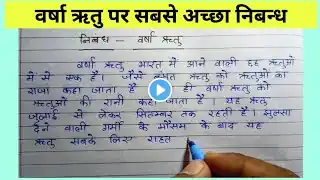 वर्षा ऋतु पर सबसे अच्छा निबन्ध
निबन्ध – वर्षा ऋतु
वर्षा ऋतु भारत में आने वाली छह ऋतुओं
में से एक है। जैसे बसंत ऋतु को ऋतुओं का
राजा कहा जाता है ही वर्षा ऋतु को
ऋतुओं की रानी कहा जाता है। यह ऋतु
जुलाई से लेकर सितम्बर तक रहती है। झुलसा
देने वाली गर्मी के मौसम के बाद यह
ऋतु सबके लिए राहत